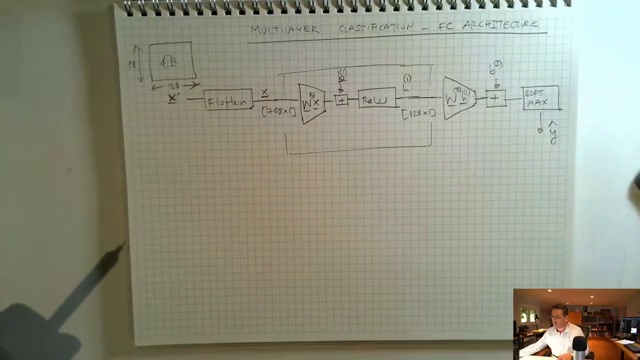 MULTILAYER CLASSIFICATION - FC ARCHITECTURE
28
28
X Flatten x W⁽¹⁾x + b⁽¹⁾ ReLU h⁽¹⁾ W⁽²⁾h⁽¹⁾ + b⁽²⁾ SOFT
MAX
[128x1]
ŷ